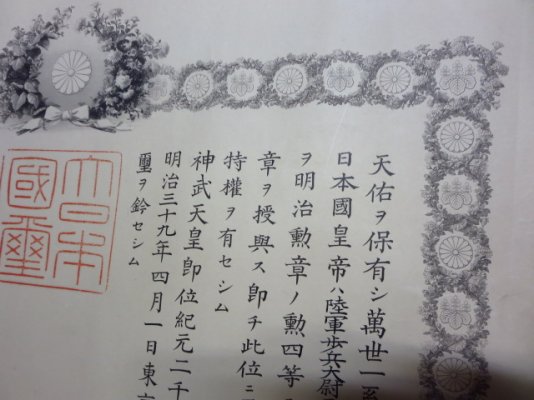 天佑ヲ保有シ萬世一
日本國皇帝ハ陸軍歩兵大尉
ヲ明治勲章ノ勲四等
章ヲ授與ス即チ此位ニ
特權ヲ有セシム
神武天皇即位紀元二千
明治三十九年四月一日東
璽ヲ鈐セシム
大日本
國璽